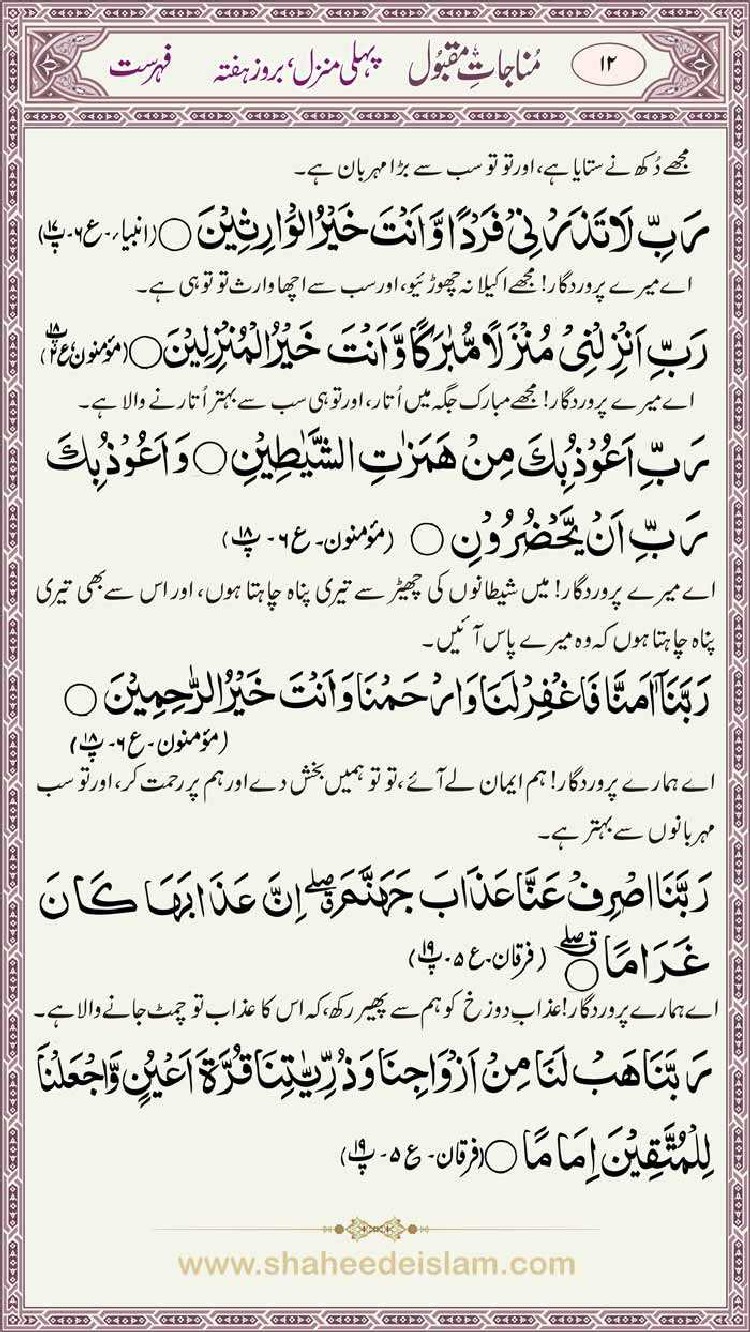 ۱۲ مُناجاتِ مقبُول پہلی منزل، بروز ہفتہ فہرست
مجھے دُکھ نے ستایا ہے، اور تو تو سب سے بڑا مہربان ہے۔
رَبِّ لَا تَذَرْنِیْ فَرْدًا وَّاَنْتَ خَیْرُ الْوَارِثِیْنَ ○ (انبیاء۔ ع ۶۔ پ ۱۷)
اے میرے پروردگار! مجھے اکیلا نہ چھوڑئیو، اور سب سے اچھا وارث تو تو ہی ہے۔
رَبِّ اَنْزِلْنِیْ مُنْزَلًا مُّبٰرَکًا وَّاَنْتَ خَیْرُ الْمُنْزِلِیْنَ ○ (مؤمنون، ع ۲ پ ۱۸)
اے میرے پروردگار! مجھے مبارک جگہ میں اُتار، اور تو ہی سب سے بہتر اُتارنے والا ہے۔
رَبِّ اَعُوْذُ بِكَ مِنْ هَمَزٰتِ الشَّیٰطِیْنِ ○ وَاَعُوْذُ بِكَ
رَبِّ اَنْ یَّحْضُرُوْنِ ○ (مؤمنون۔ ع ۶۔ پ ۱۸)
اے میرے پروردگار! میں شیطانوں کی چھیڑ سے تیری پناہ چاہتا ہوں، اور اس سے بھی تیری
پناہ چاہتا ہوں کہ وہ میرے پاس آئیں۔
رَبَّنَآ اٰمَنَّا فَاغْفِرْ لَنَا وَارْحَمْنَا وَاَنْتَ خَیْرُ الرّٰحِمِیْنَ ○
(مؤمنون۔ ع ۶۔ پ ۱۸)
اے ہمارے پروردگار! ہم ایمان لے آئے، تو تو ہمیں بخش دے اور ہم پر رحمت کر، اور تو سب
مہربانوں سے بہتر ہے۔
رَبَّنَا اصْرِفْ عَنَّا عَذَابَ جَهَنَّمَ ۖ اِنَّ عَذَابَهَا كَانَ
غَرَامًا ○ (فرقان۔ ع ۵۔ پ ۱۹)
اے ہمارے پروردگار! عذابِ دوزخ کو ہم سے پھیر رکھ، کہ اس کا عذاب تو چمٹ جانے والا ہے۔
رَبَّنَا هَبْ لَنَا مِنْ اَزْوَاجِنَا وَذُرِّیّٰتِنَا قُرَّةَ اَعْیُنٍ وَّاجْعَلْنَا
لِلْمُتَّقِیْنَ اِمَامًا ○ (فرقان۔ ع ۵۔ پ ۱۹)
www.shaheedeislam.com